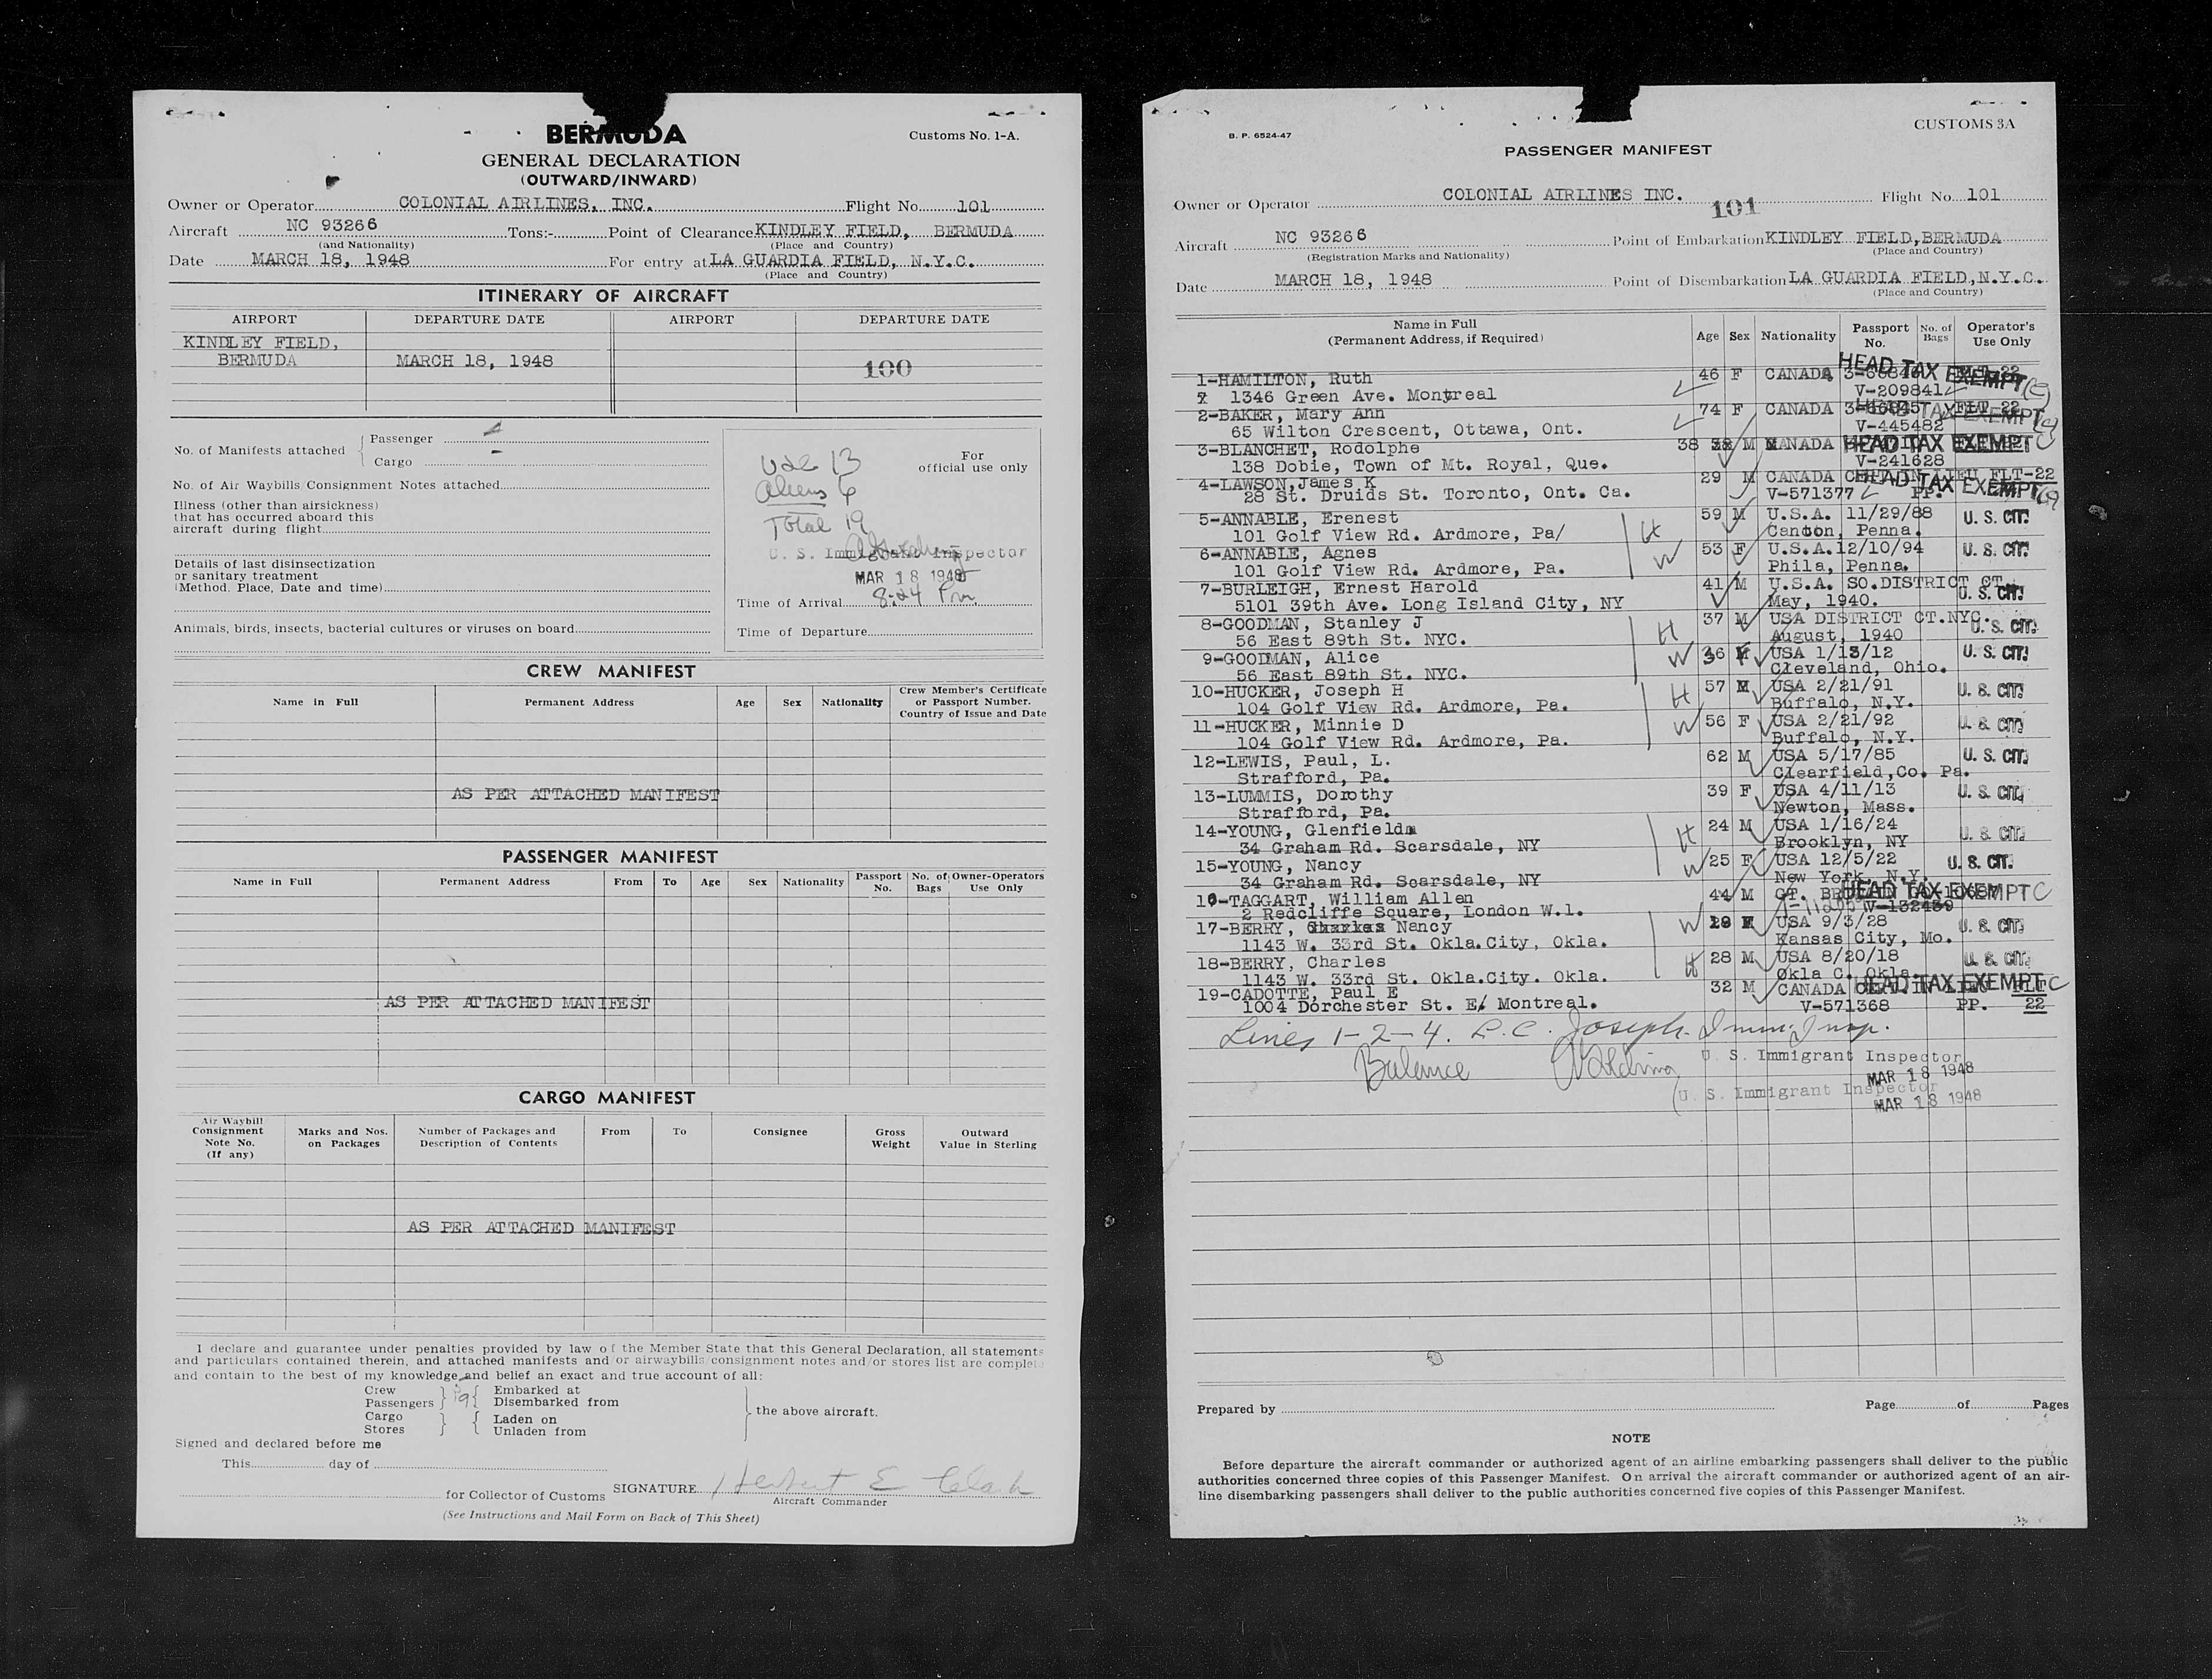 BERMUDA
Customs No. 1-A.
GENERAL DECLARATION
(OUTWARD/INWARD)
Owner or Operator COLONIAL AIRLINES, INC. Flight No. 101
Aircraft NC 93266 Tons:- Point of Clearance KINDLEY FIELD, BERMUDA
(and Nationality) (Place and Country)
Date MARCH 18, 1948 For entry at LA GUARDIA FIELD, N.Y.C.
(Place and Country)
ITINERARY OF AIRCRAFT
AIRPORT DEPARTURE DATE AIRPORT DEPARTURE DATE
KINDLEY FIELD,
BERMUDA MARCH 18, 1948 100
No. of Manifests attached { Passenger
Cargo -
No. of Air Waybills/Consignment Notes attached
Illness (other than airsickness)
that has occurred aboard this
aircraft during flight
Details of last disinsectization
or sanitary treatment
(Method. Place, Date and time)
Animals, birds, insects, bacterial cultures or viruses on board
For
official use only
USC 13
Aliens 6
Total 19
U. S. Immigrant Inspector
MAR 18 1948
8:24 Pm
Time of Arrival
Time of Departure
CREW MANIFEST
Name in Full Permanent Address Age Sex Nationality Crew Member's Certificate
or Passport Number.
Country of Issue and Date
AS PER ATTACHED MANIFEST
PASSENGER MANIFEST
Name in Full Permanent Address From To Age Sex Nationality Passport No. No. of Bags Owner-Operators Use Only
AS PER ATTACHED MANIFEST
CARGO MANIFEST
Air Waybill
Consignment
Note No.
(If any)
Marks and Nos.
on Packages
Number of Packages and
Description of Contents
From To Consignee
Gross
Weight
Outward
Value in Sterling
AS PER ATTACHED MANIFEST
I declare and guarantee under penalties provided by law of the Member State that this General Declaration, all statements
and particulars contained therein, and attached manifests and/or airwaybills/consignment notes and/or stores list are complete
and contain to the best of my knowledge and belief an exact and true account of all:
Crew
Passengers } 19 { Embarked at
Disembarked from
Cargo
Stores } { Laden on
Unladen from
} the above aircraft.
Signed and declared before me
This day of
for Collector of Customs SIGNATURE Herbert E Clark
Aircraft Commander
(See Instructions and Mail Form on Back of This Sheet)
B. P. 6524-47
CUSTOMS 3A
PASSENGER MANIFEST
Owner or Operator COLONIAL AIRLINES INC. 101 Flight No. 101
Aircraft NC 93266 Point of Embarkation KINDLEY FIELD,BERMUDA
(Registration Marks and Nationality) (Place and Country)
Date MARCH 18, 1948 Point of Disembarkation LA GUARDIA FIELD,N.Y.C.
(Place and Country)
Name in Full
(Permanent Address, if Required)
Age Sex Nationality Passport No. No. of Bags Operator's Use Only
1-HAMILTON, Ruth 46 F CANADA HEAD TAX EXEMPT (C)
1346 Green Ave. Montreal V-209841
2-BAKER, Mary Ann 74 F CANADA HEAD TAX EXEMPT (C)
65 Wilton Crescent, Ottawa, Ont. V-445482
3-BLANCHET, Rodolphe 38 M CANADA HEAD TAX EXEMPT C
138 Dobie, Town of Mt. Royal, Que. V-241628
4-LAWSON,James K 29 M CANADA CERT.IN LIEU FLT-22
28 St. Druids St. Toronto, Ont. Ca. V-571377 PP. HEAD TAX EXEMPT (C)
5-ANNABLE, Erenest H 59 M U.S.A. 11/29/88 U. S. CIT.
101 Golf View Rd. Ardmore, Pa/ Canton, Penna.
6-ANNABLE, Agnes W 53 F U.S.A.12/10/94 U. S. CIT.
101 Golf View Rd. Ardmore, Pa. Phila, Penna.
7-BURLEIGH, Ernest Harold 41 M U.S.A. SO.DISTRICT CT.
5101 39th Ave. Long Island City, NY May, 1940. U. S. CIT.
8-GOODMAN, Stanley J H 37 M USA DISTRICT CT.NYC.
56 East 89th St. NYC. August, 1940 U. S. CIT.
9-GOODMAN, Alice W 36 F USA 1/13/12 U. S. CIT.
56 East 89th St. NYC. Cleveland, Ohio.
10-HUCKER, Joseph H H 57 M USA 2/21/91 U. S. CIT.
104 Golf View Rd. Ardmore, Pa. Buffalo, N.Y.
11-HUCKER, Minnie D W 56 F USA 2/21/92 U. S. CIT.
104 Golf View Rd. Ardmore, Pa. Buffalo, N.Y.
12-LEWIS, Paul, L. 62 M USA 5/17/85 U. S. CIT.
Strafford, Pa. Clearfield,Co. Pa.
13-LUMMIS, Dorothy 39 F USA 4/11/13 U. S. CIT.
Strafford, Pa. Newton, Mass.
14-YOUNG, Glenfield H 24 M USA 1/16/24 U. S. CIT.
34 Graham Rd. Scarsdale, NY Brooklyn, NY
15-YOUNG, Nancy W 25 F USA 12/5/22 U. S. CIT.
34 Graham Rd. Scarsdale, NY New York, N.Y.
16-TAGGART, William Allen 44 M GT. HEAD TAX EXEMPT C
2 Redcliffe Square, London W.1. V-132439
17-BERRY, Nancy W 19 F USA 9/3/28 U. S. CIT.
1143 W. 33rd St. Okla.City, Okla. Kansas City, Mo.
18-BERRY, Charles H 28 M USA 8/20/18 U. S. CIT.
1143 W. 33rd St. Okla.City. Okla. Okla C. Okla.
19-CADOTTE, Paul E 32 M CANADA HEAD TAX EXEMPT C FLT
1004 Dorchester St. E/ Montreal. V-571368 PP. 22
Lines 1-2-4. R.C. Joseph. Imm. Insp.
Balance
U. S. Immigrant Inspector
MAR 18 1948
U. S. Immigrant Inspector
MAR 18 1948
Prepared by Page of Pages
NOTE
Before departure the aircraft commander or authorized agent of an airline embarking passengers shall deliver to the public
authorities concerned three copies of this Passenger Manifest. On arrival the aircraft commander or authorized agent of an air-
line disembarking passengers shall deliver to the public authorities concerned five copies of this Passenger Manifest.